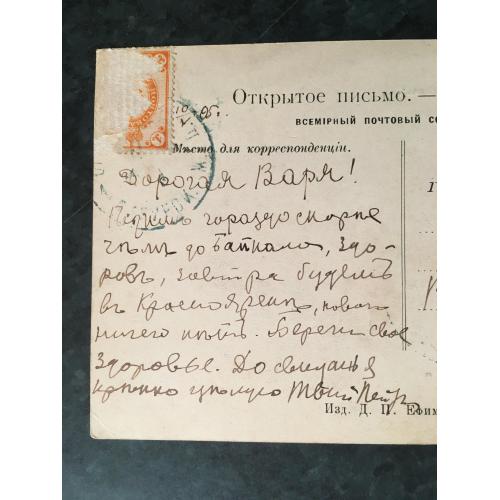 Открытое письмо. —
ВСЕМІРНЫЙ ПОЧТОВЫЙ СО
Мѣсто для корреспонденціи.
Дорогая Варя!
гораздо скорѣе
чѣмъ до Байкала, здо-
ровъ, завтра будемъ
въ Красноярскѣ, новаго
ничего нѣтъ. Береги свое
здоровье. До свиданья
крѣпко цѣлую Твой Петръ
Изд. Д. П. Ефим